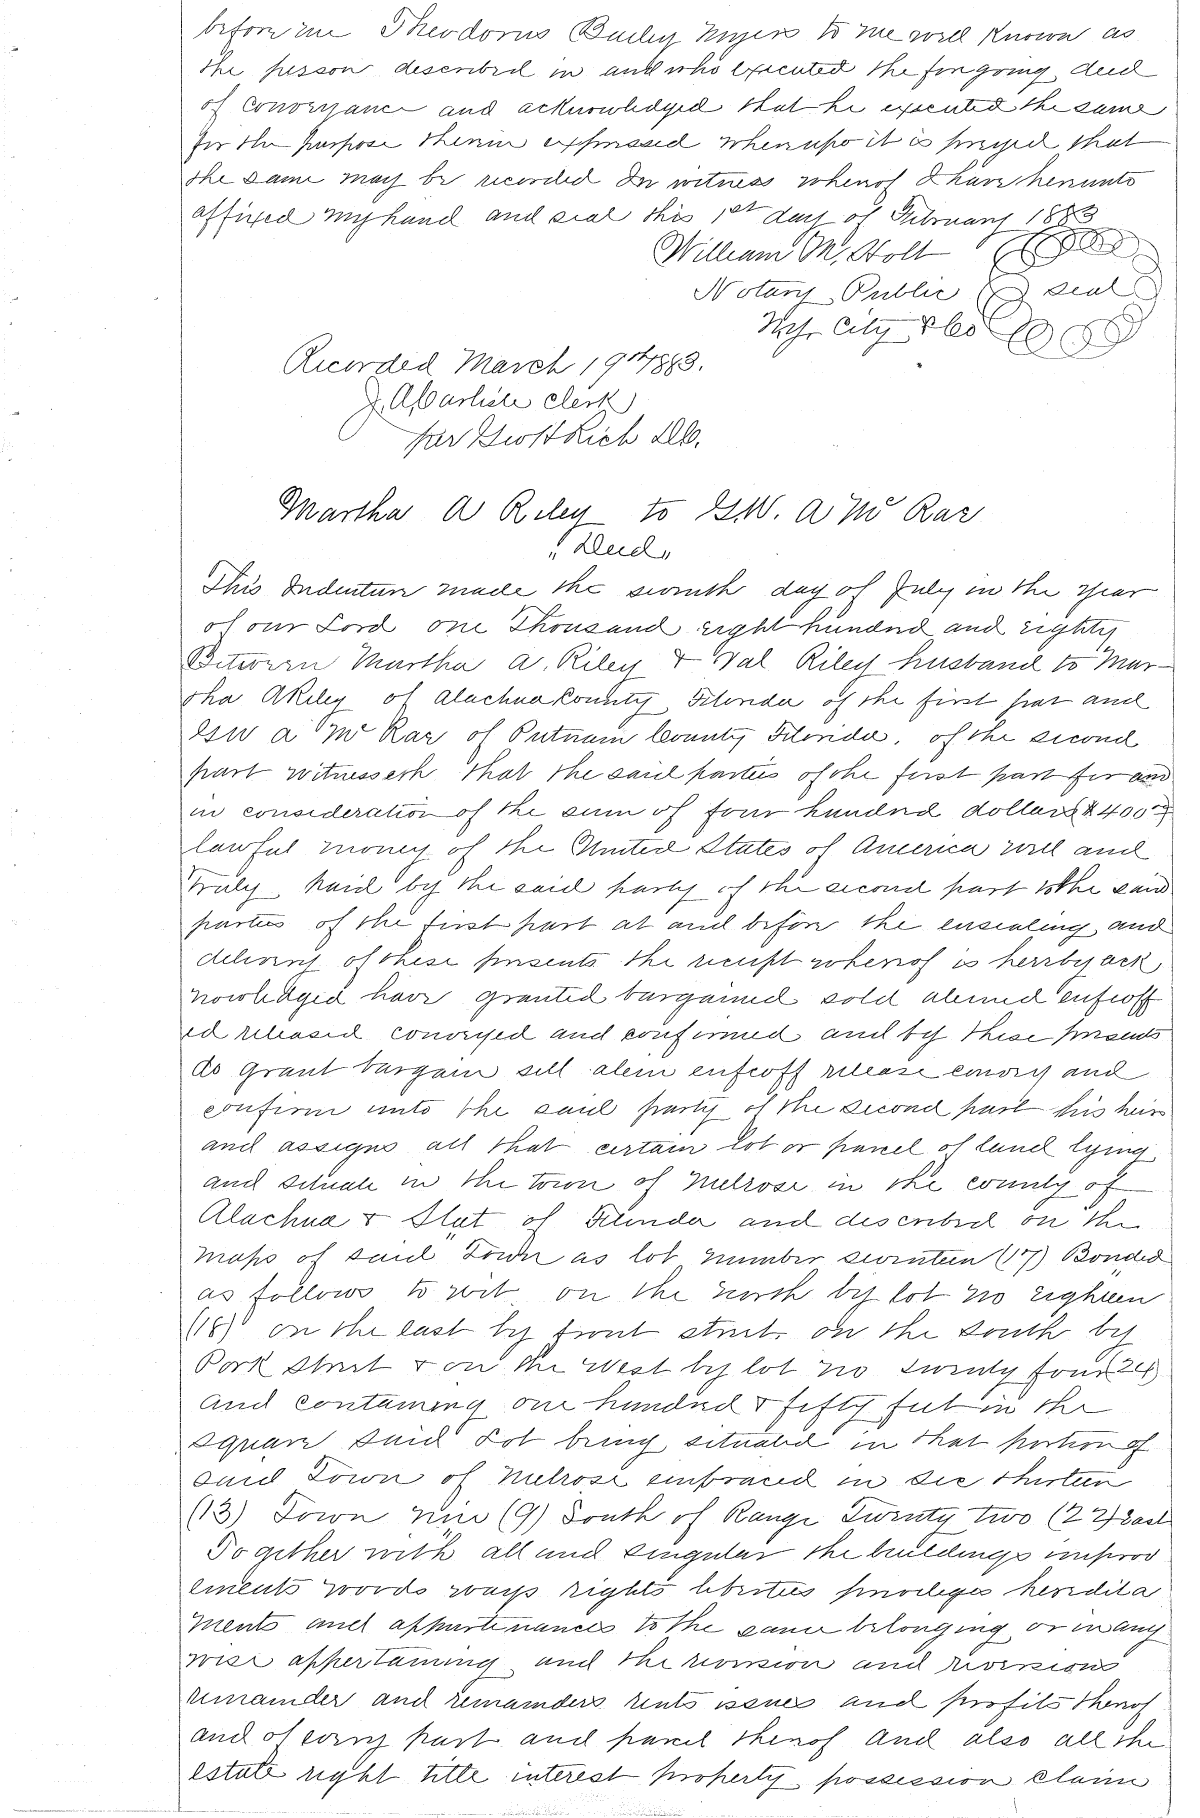 before me Theodorus Bailey Myers to me well known as
the person described in and who executed the foregoing deed
of conveyance and acknowledged that he executed the same
for the purpose therein expressed whereupo it is prayed that
the same may be recorded In witness whereof I have hereunto
affixed my hand and seal this 1st day of February 1883
William M. Holt
Notary Public seal
N.Y. City & Co
Recorded March 19th 1883.
J. A. Carlisle clerk
per Rich D.C.
Martha A Riley to G.W. A McRae
"Deed"
This Indenture made the seventh day of July in the year
of our Lord one Thousand eight hundred and eighty
Between Martha A. Riley & Val Riley husband to Mar-
tha A Riley of Alachua County Florida of the first part and
GW A McRae of Putnam County Florida. of the second
part witnesseth that the said parties of the first part for and
in consideration of the sum of four hundred dollars ($400 00
lawful money of the United States of America well and
truly paid by the said party of the second part to the said
parties of the first part at and before the ensealing and
delivery of these presents the receipt whereof is hereby ack
nowledged have granted bargained sold aliened enfeoff
ed released conveyed and confirmed and by these presents
do grant bargain sell alein enfeoff release convey and
confirm unto the said party of the second part his heirs
and assigns all that certain lot or parcel of land lying
and situate in the town of Melrose in the county of
Alachua & Stat of Florida and described on the
maps of said Town as lot number seventeen (17) Bonded
as follows to wit on the north by lot no eighteen
(18) on the east by front street on the south by
Pork street & on the West by lot no twenty four 24)
and containing one hundred & fifty feet in the
square said Lot being situated in that portion of
said Town of Melrose embraced in sec thirteen
(13) Town nine (9) South of Range Twenty two (22) East
Together with all and singular the buildings improv
ements woods ways rights liberties privileges heredita
ments and appurtenances to the same belonging or in any
wise appertaining and the revision and reversions
remainder and remainders rents issues and profits thereof
and of every part and parcel thereof And also all the
estate right title interest property possession claim